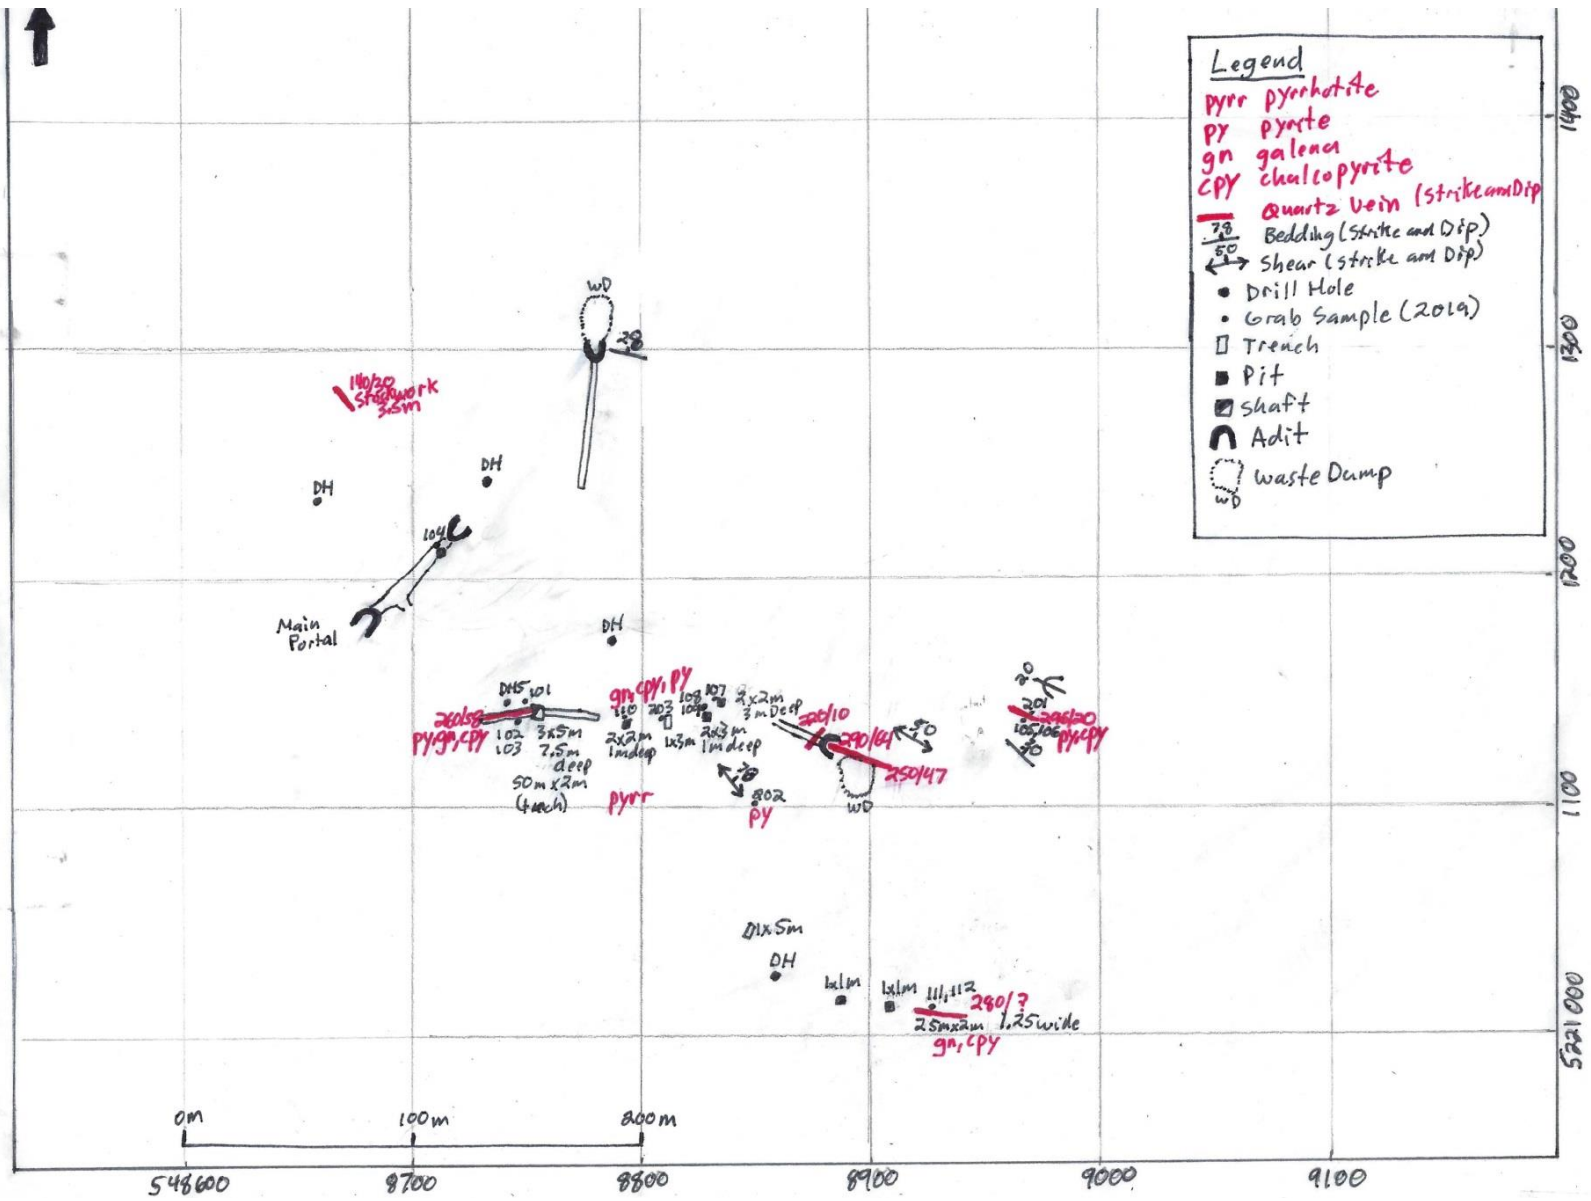 Legend
pyrr pyrrhotite
py pyrite
gn galena
cpy chalcopyrite
Quartz Vein (Strike and Dip
78
Bedding (Strike and Dip)
50
Shear (Strike and Dip)
Drill Hole
Grab Sample (2019)
Trench
Pit
shaft
Adit
waste Dump
WD
1400
1300
1200
1100
5221000
WD
28
140/20
Stockwork
3.5m
DH
DH
104
Main
Portal
DH
DH5 101
260/58
py, gn, cpy
102
103
3x5m
7.5m
deep
50m x 2m
(trench)
gn, cpy, py
110
203
108
107
109
2x2m
3m Deep
2x2m
1m deep
1x3m
2x3m
1m deep
pyrr
78
802
py
220/10
290/64
250/47
50
WD
20
201
295/20
105,106
py, cpy
1x5m
DH
1x1m
1x1m
111,112
280/?
25mx2m 1.25 wide
gn, cpy
0m
100m
200m
548600
8700
8800
8900
9000
9100